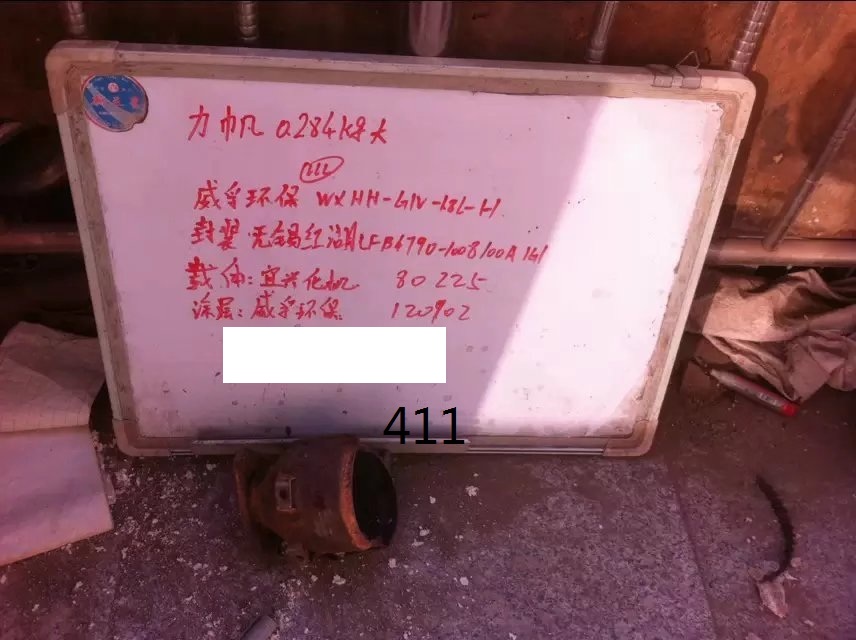 力帆 0.284kg大
111
威孚环保 WXHH-GIV-18L-H
封装 无锡红湖LFB479D-1008100A 141
载体:宜兴化机 80225
涂层:威孚环保 120902
411